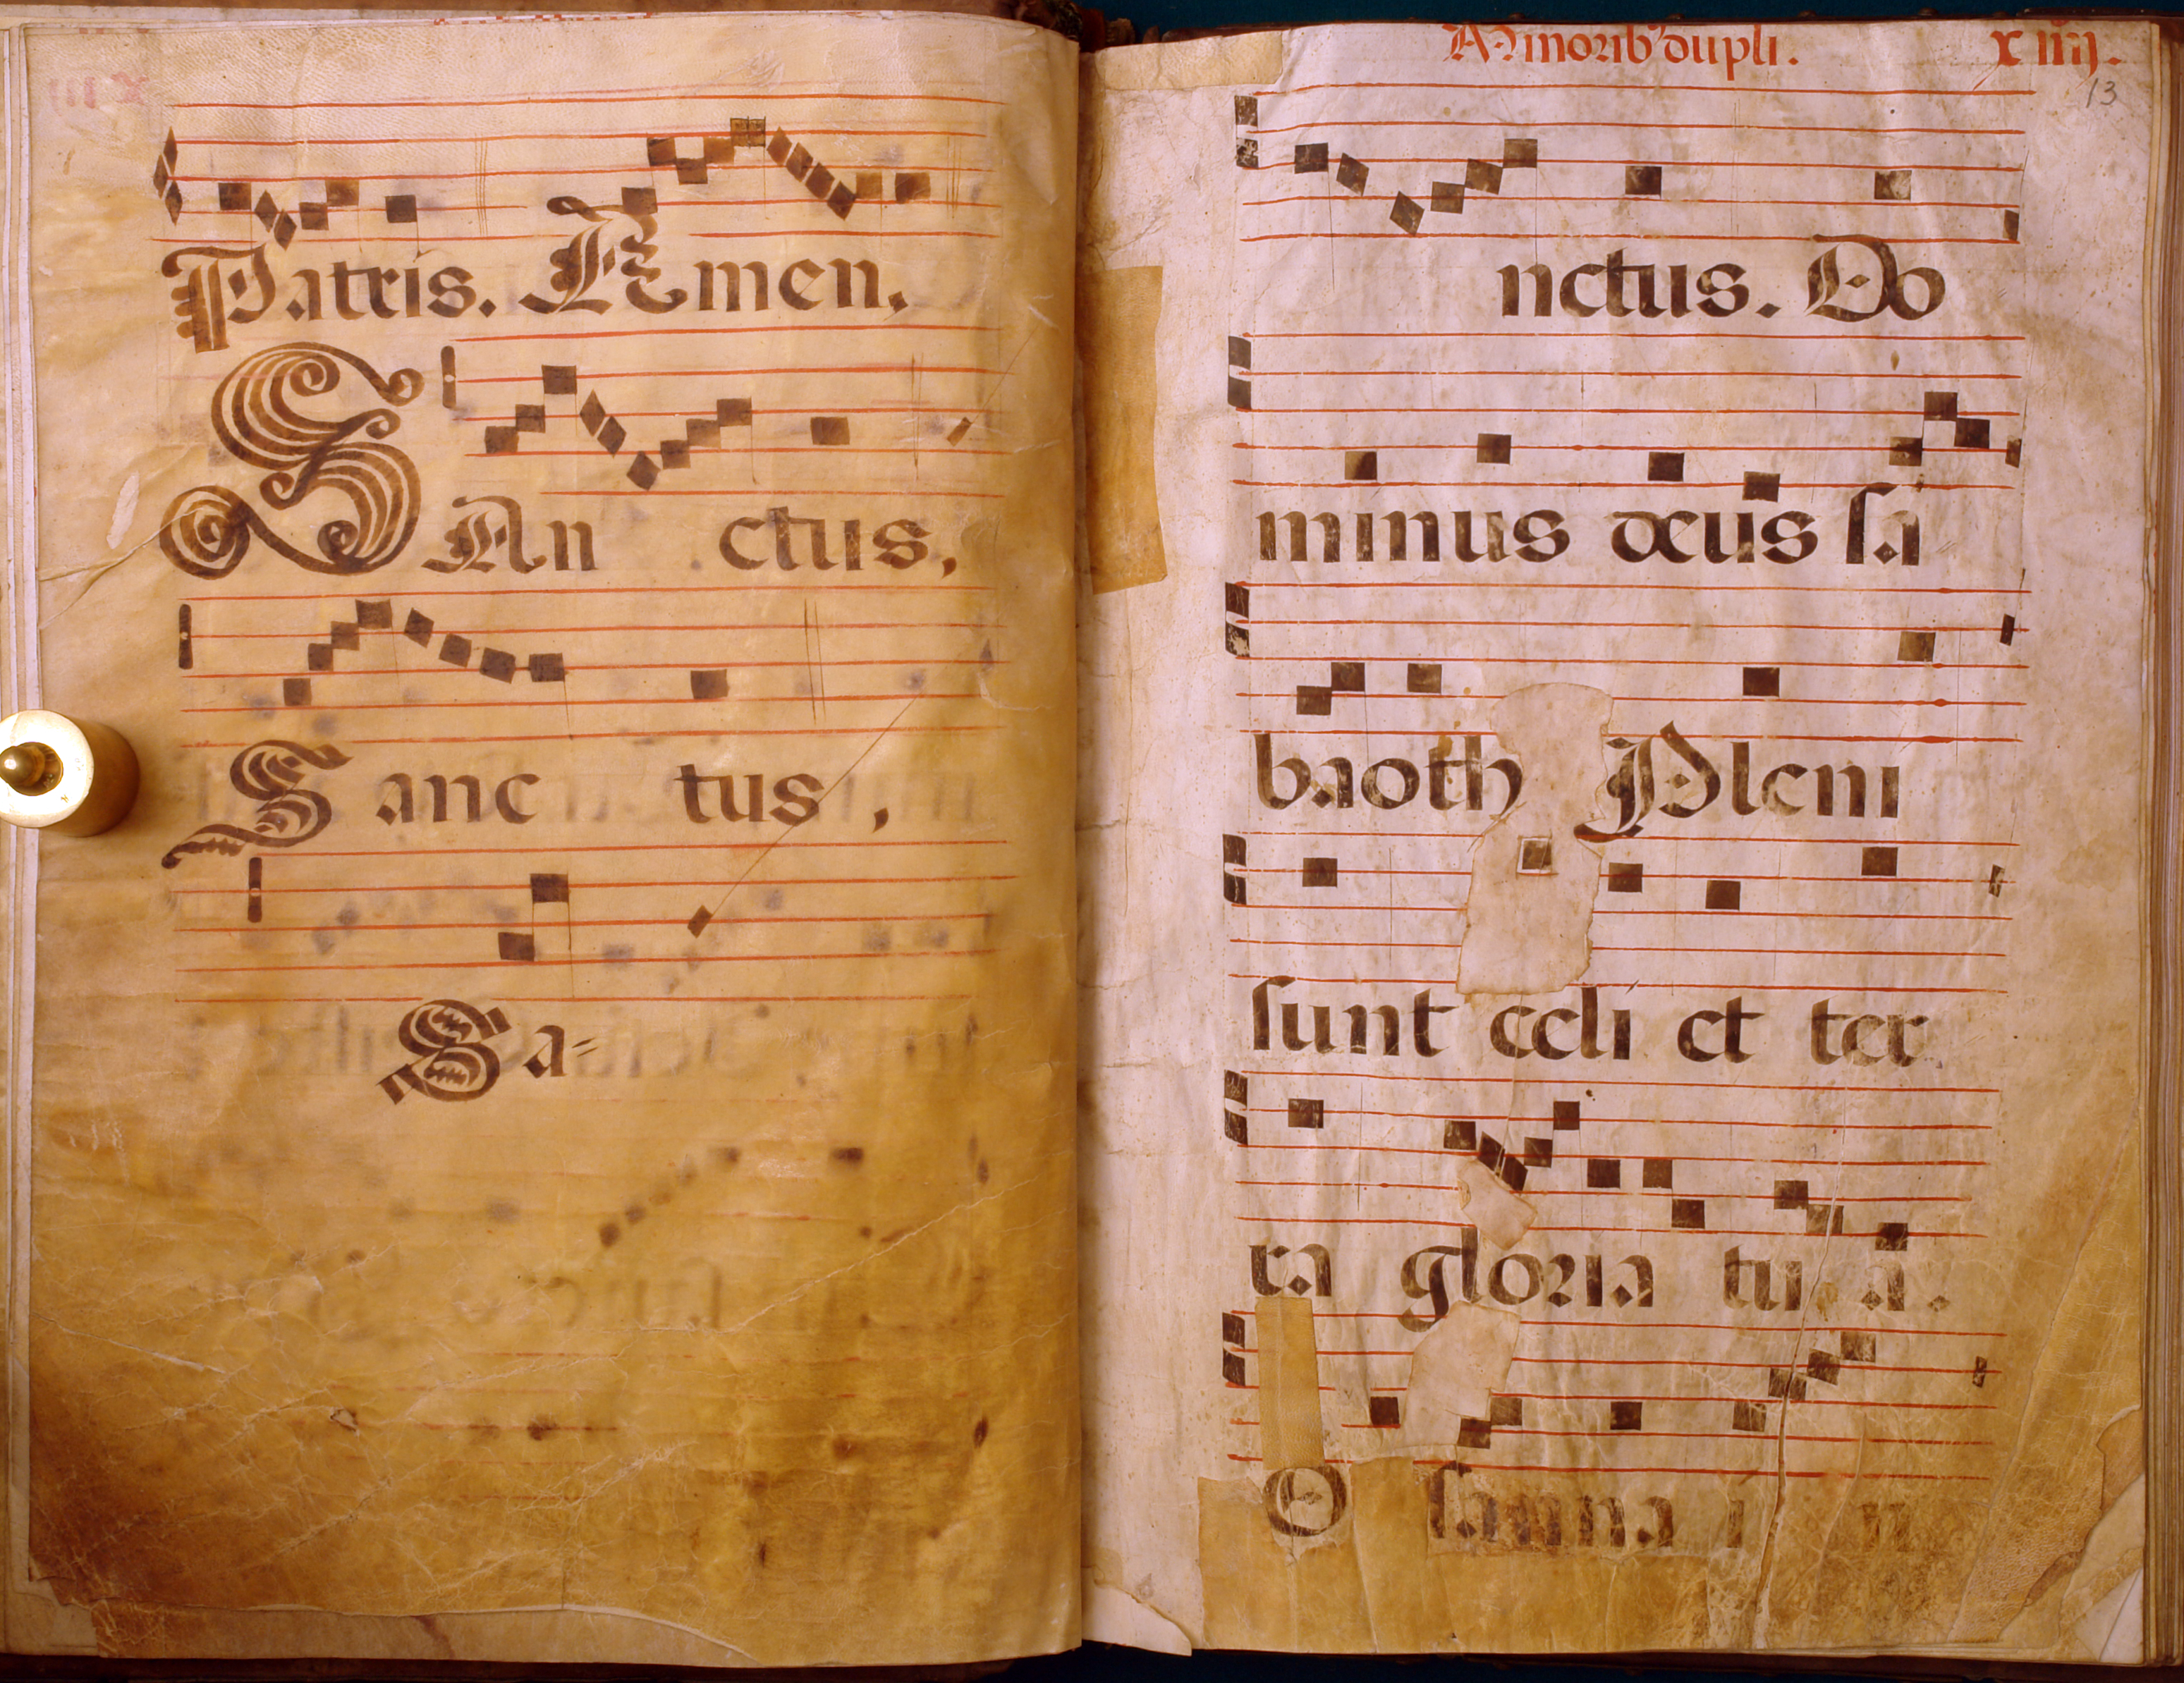 Patris. Amen.
SAn ctus,
Sanc tus,
Sa=
Ad minorib' dupli. xiiij.
13
nctus. Do
minus deus sa
baoth Pleni
sunt celi et ter
ra gloria tu a.
O sanna in